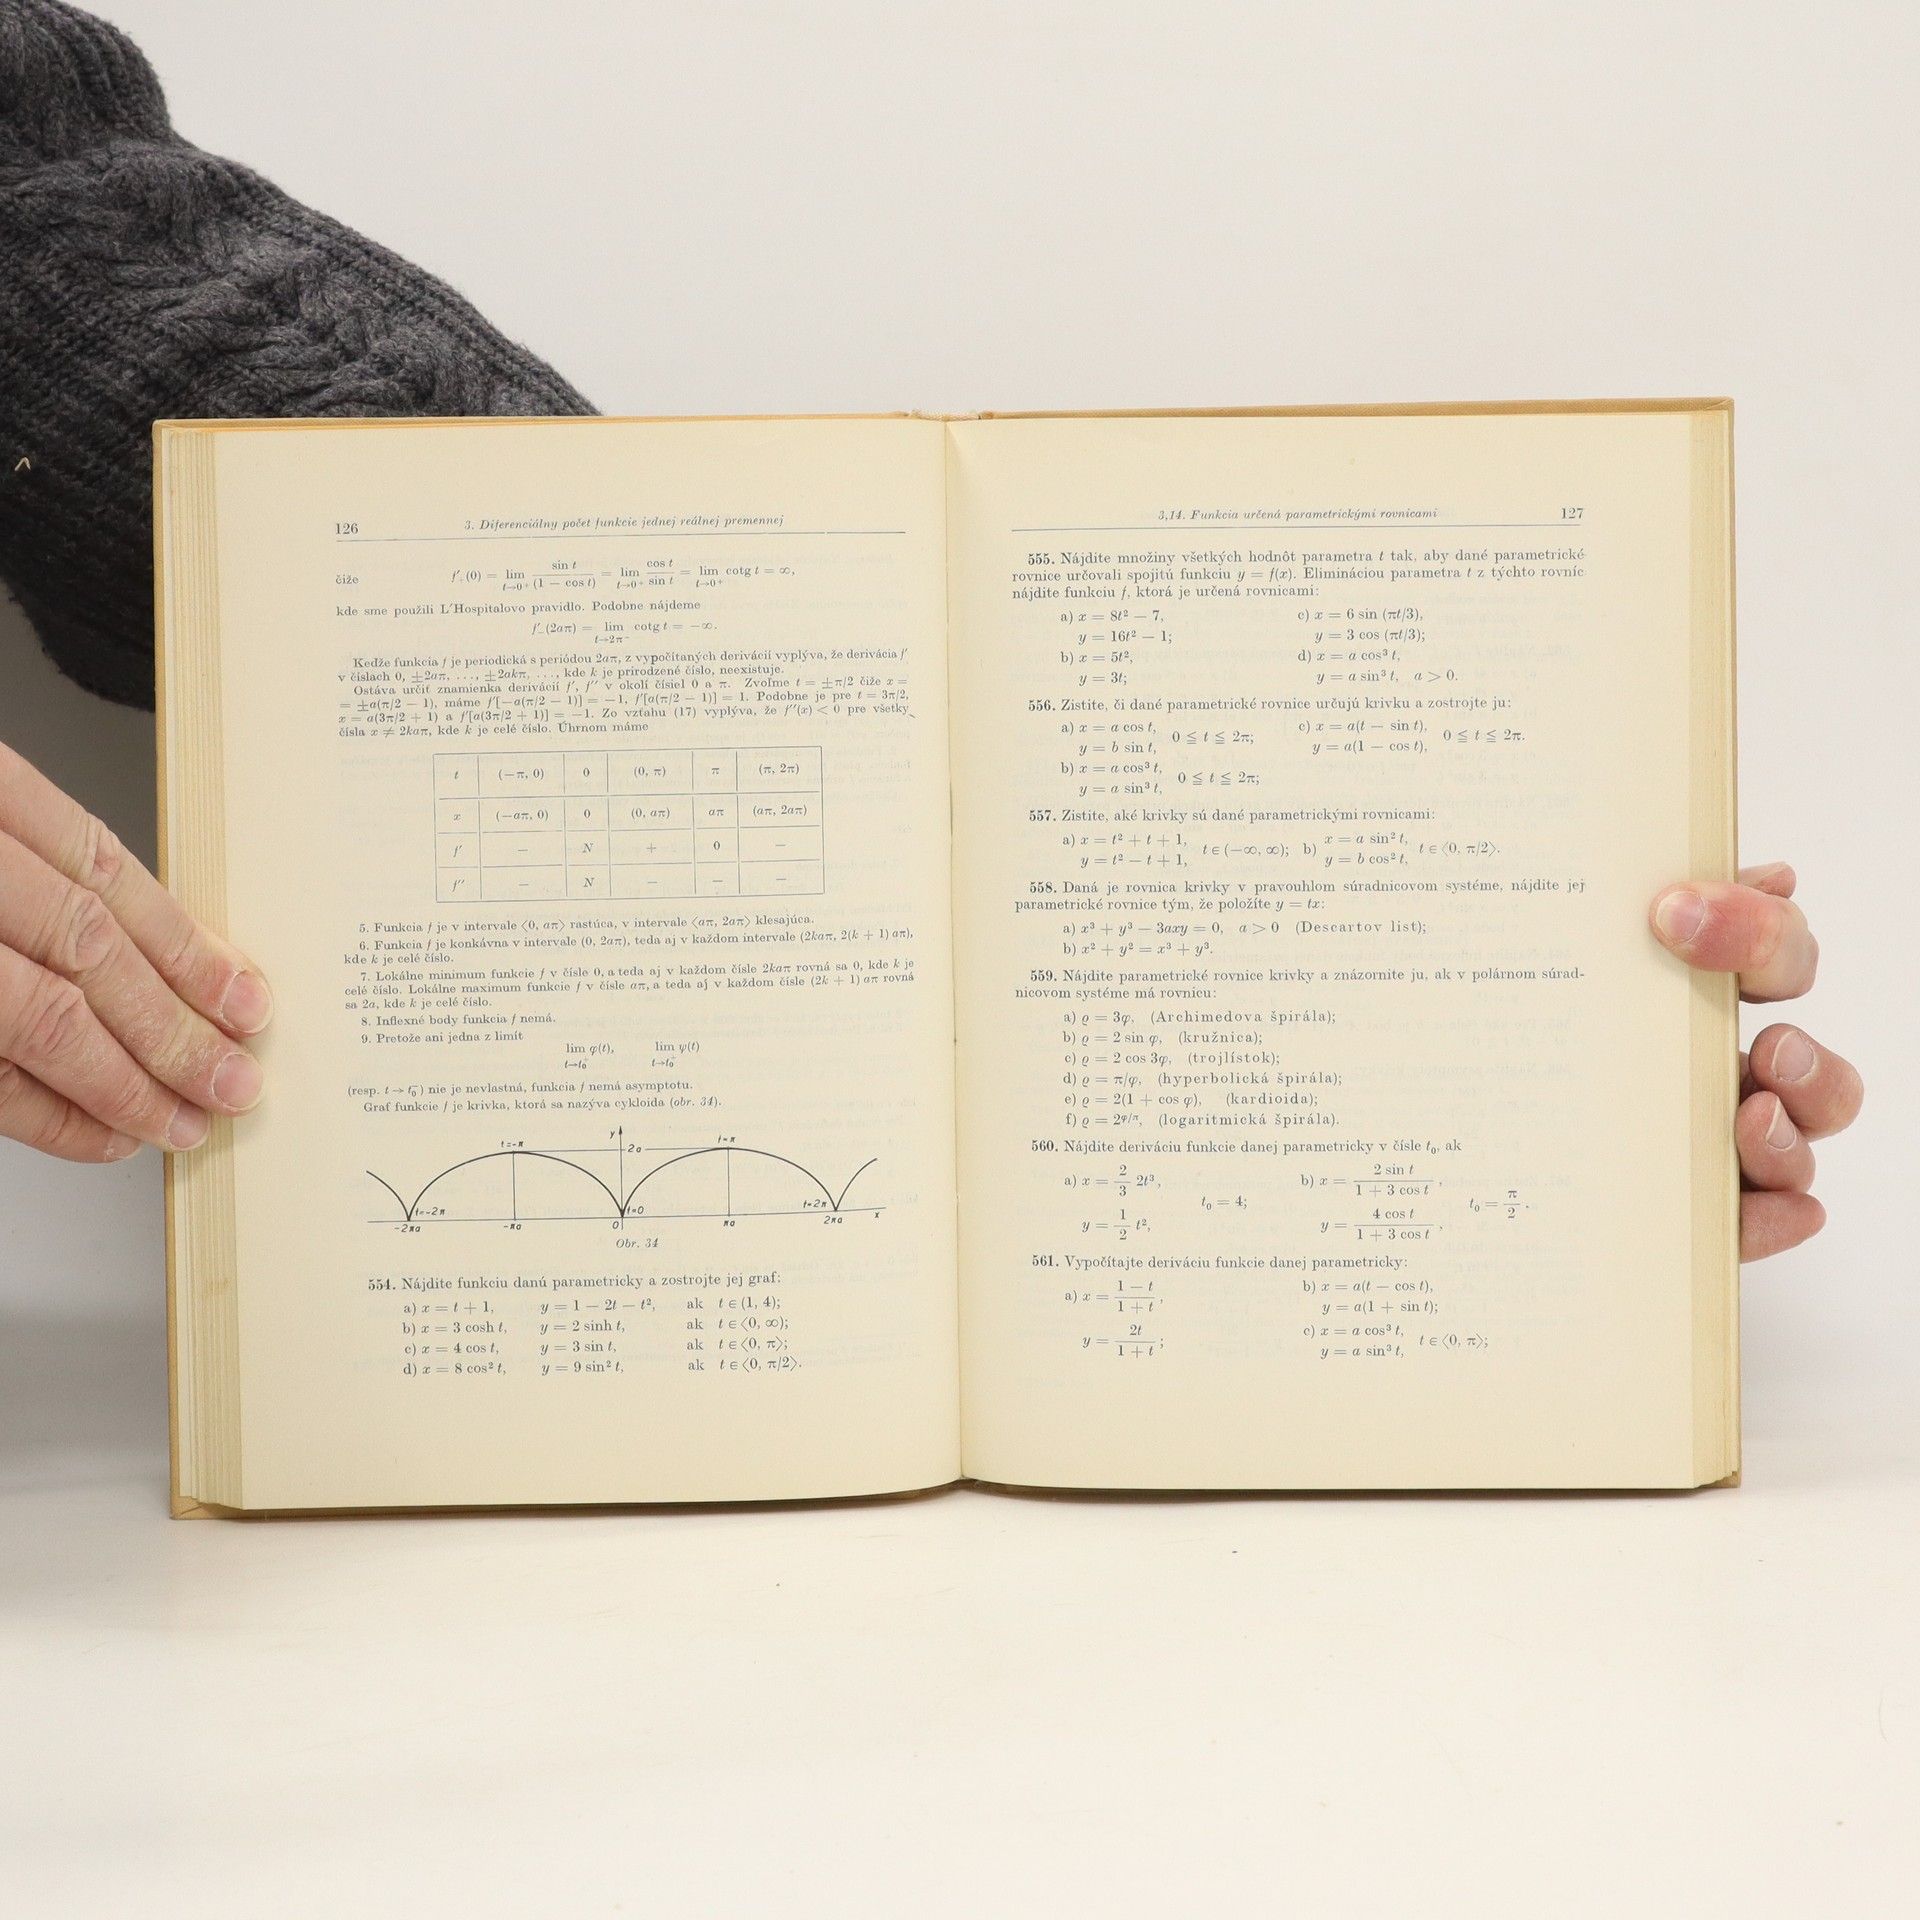 126
3. Diferenciálny počet funkcie jednej reálnej premennej
čiže f′₊(0) = lim t→0⁺ sin t / (1 − cos t) = lim t→0⁺ cos t / sin t = lim t→0⁺ cotg t = ∞,
kde sme použili L′Hospitalovo pravidlo. Podobne nájdeme
f′₋(2aπ) = lim t→2π⁻ cotg t = −∞.
Keďže funkcia f je periodická s periódou 2aπ, z vypočítaných derivácií vyplýva, že derivácia f′
v číslach 0, ±2aπ, ..., ±2akπ, ..., kde k je prirodzené číslo, neexistuje.
Ostáva určiť znamienka derivácií f′, f″ v okolí čísiel 0 a π. Zvoľme t = ±π/2 čiže x =
= ±a(π/2 − 1), máme f′[−a(π/2 − 1)] = −1, f′[a(π/2 − 1)] = 1. Podobne je pre t = 3π/2,
x = a(3π/2 + 1) a f′[a(3π/2 + 1)] = −1. Zo vzťahu (17) vyplýva, že f″(x) < 0 pre všetky
čísla x ≠ 2kaπ, kde k je celé číslo. Úhrnom máme
t (−π, 0) 0 (0, π) π (π, 2π)
x (−aπ, 0) 0 (0, aπ) aπ (aπ, 2aπ)
f′ − N + 0 −
f″ − N − − −
5. Funkcia f je v intervale ⟨0, aπ⟩ rastúca, v intervale ⟨aπ, 2aπ⟩ klesajúca.
6. Funkcia f je konkávna v intervale (0, 2aπ), teda aj v každom intervale (2kaπ, 2(k + 1) aπ),
kde k je celé číslo.
7. Lokálne minimum funkcie f v čísle 0, a teda aj v každom čísle 2kaπ rovná sa 0, kde k je
celé číslo. Lokálne maximum funkcie f v čísle aπ, a teda aj v každom čísle (2k + 1) aπ rovná
sa 2a, kde k je celé číslo.
8. Inflexné body funkcia f nemá.
9. Pretože ani jedna z limít
lim φ(t), lim ψ(t)
t→t₀⁺ t→t₀⁺
(resp. t → t₀⁻) nie je nevlastná, funkcia f nemá asymptotu.
Graf funkcie f je krivka, ktorá sa nazýva cykloida (obr. 34).
y
t=-π 2a t=π
t=-2π t=0 t=2π
-2πa -πa 0 πa 2πa x
Obr. 34
554. Nájdite funkciu danú parametricky a zostrojte jej graf:
a) x = t + 1, y = 1 − 2t − t², ak t ∈ (1, 4);
b) x = 3 cosh t, y = 2 sinh t, ak t ∈ ⟨0, ∞);
c) x = 4 cos t, y = 3 sin t, ak t ∈ ⟨0, π⟩;
d) x = 8 cos² t, y = 9 sin² t, ak t ∈ ⟨0, π/2⟩.
3,14. Funkcia určená parametrickými rovnicami
127
555. Nájdite množiny všetkých hodnôt parametra t tak, aby dané parametrické
rovnice určovali spojitú funkciu y = f(x). Elimináciou parametra t z týchto rovníc
nájdite funkciu f, ktorá je určená rovnicami:
a) x = 8t² − 7, c) x = 6 sin (πt/3),
y = 16t² − 1; y = 3 cos (πt/3);
b) x = 5t², d) x = a cos³ t,
y = 3t; y = a sin³ t, a > 0.
556. Zistite, či dané parametrické rovnice určujú krivku a zostrojte ju:
a) x = a cos t, c) x = a(t − sin t),
0 ≦ t ≦ 2π; 0 ≦ t ≦ 2π.
y = b sin t, y = a(1 − cos t),
b) x = a cos³ t,
0 ≦ t ≦ 2π;
y = a sin³ t,
557. Zistite, aké krivky sú dané parametrickými rovnicami:
a) x = t² + t + 1, x = a sin² t,
t ∈ (−∞, ∞); b) t ∈ ⟨0, π/2⟩.
y = t² − t + 1, y = b cos² t,
558. Daná je rovnica krivky v pravouhlom súradnicovom systéme, nájdite jej
parametrické rovnice tým, že položíte y = tx:
a) x³ + y³ − 3axy = 0, a > 0 (Descartov list);
b) x² + y² = x³ + y³.
559. Nájdite parametrické rovnice krivky a znázornite ju, ak v polárnom súrad-
nicovom systéme má rovnicu:
a) ϱ = 3φ, (Archimedova špirála);
b) ϱ = 2 sin φ, (kružnica);
c) ϱ = 2 cos 3φ, (trojlístok);
d) ϱ = π/φ, (hyperbolická špirála);
e) ϱ = 2(1 + cos φ), (kardioida);
f) ϱ = 2^(φ/π), (logaritmická špirála).
560. Nájdite deriváciu funkcie danej parametricky v čísle t₀, ak
a) x = 2/3 2t³, b) x = 2 sin t / (1 + 3 cos t),
t₀ = 4; t₀ = π/2.
y = 1/2 t², y = 4 cos t / (1 + 3 cos t),
561. Vypočítajte deriváciu funkcie danej parametricky:
a) x = (1 − t)/(1 + t), b) x = a(t − cos t),
y = a(1 + sin t);
y = 2t/(1 + t); c) x = a cos³ t,
t ∈ ⟨0, π⟩;
y = a sin³ t,